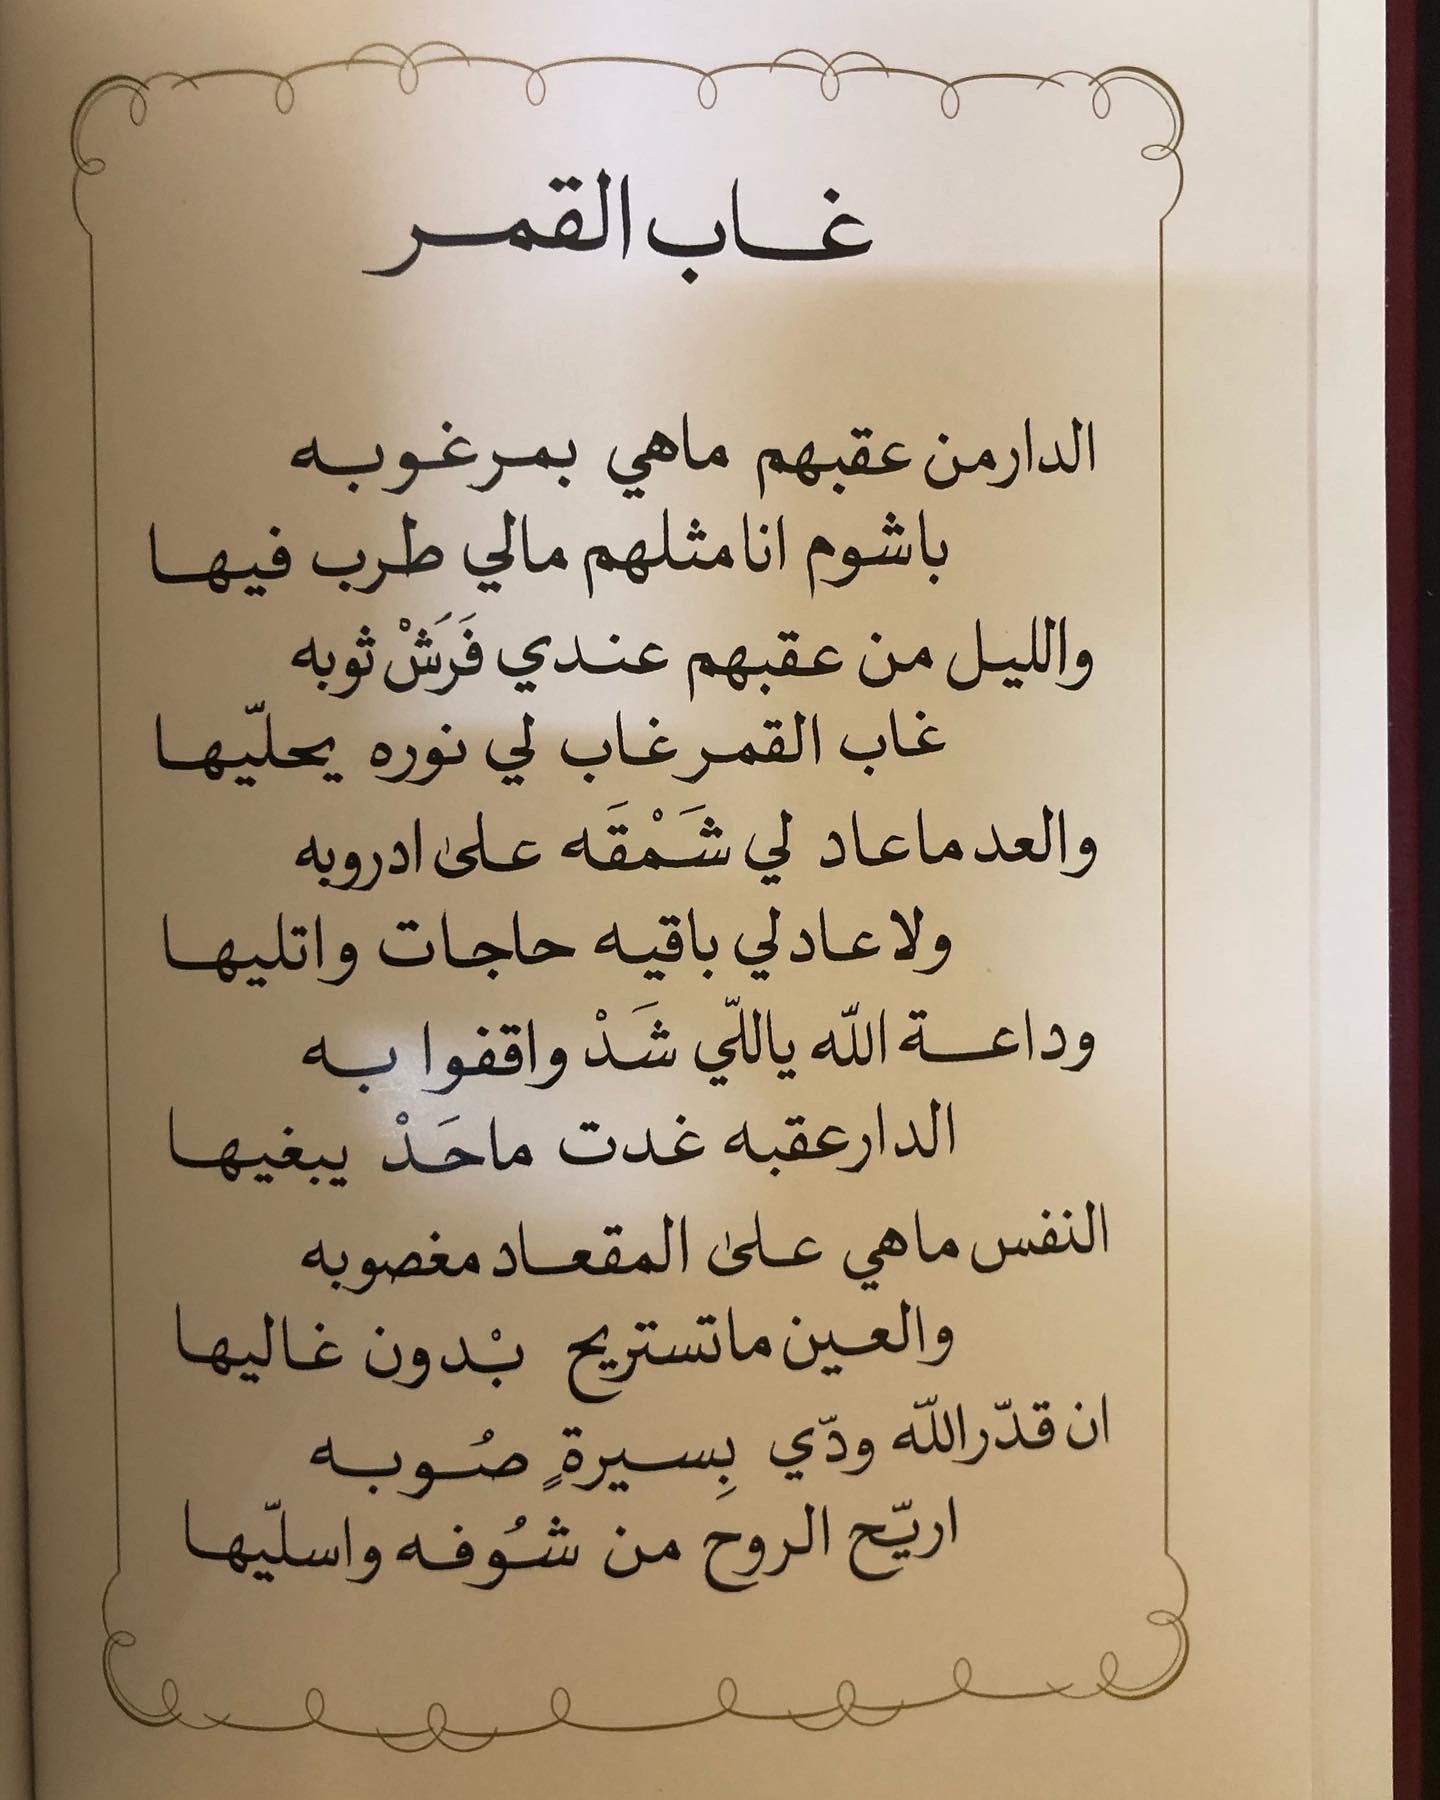 غاب القمر
الدار من عقبهم ماهي بمرغوبه
باشوم انا مثلهم مالي طرب فيها
والليل من عقبهم عندي فَرَشْ ثوبه
غاب القمر غاب لي نوره يحلّيها
والعد ماعاد لي شَمْقَه على ادروبه
ولا عاد لي باقيه حاجات واتليها
وداعة الله ياللّي شَدْ واقفوا به
الدار عقبه غدت ماحَدْ يبغيها
النفس ماهي على المقعاد مغصوبه
والعين ماتستريح بْدون غاليها
ان قدّر الله ودّي بِسيرةٍ صُوبه
اريّح الروح من شُوفه واسلّيها